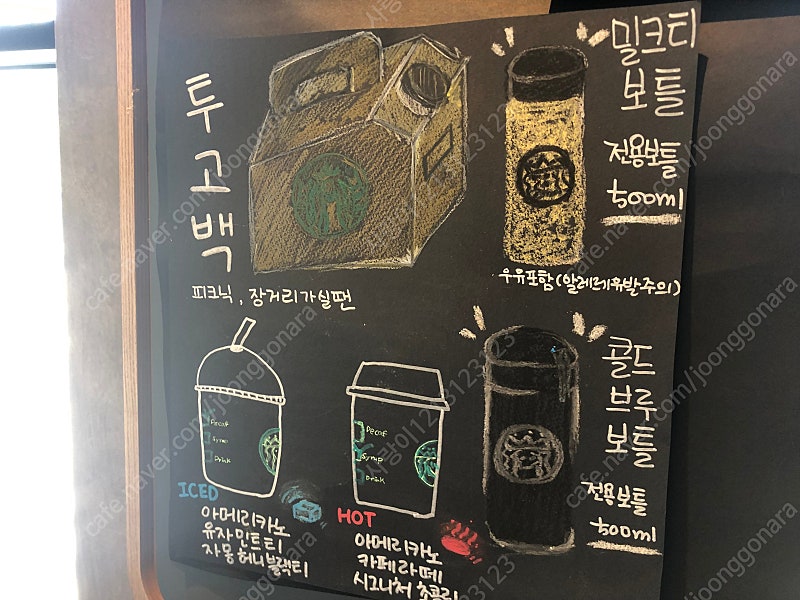 투고백
피크닉, 장거리가실땐
밀크티
보틀
전용보틀
500ml
우유포함(알레르기유발주의)
콜드
브루
보틀
전용보틀
500ml
Decaf
Syrup
Drink
ICED
아메리카노
유자민트티
자몽허니블랙티
Decaf
Syrup
Drink
HOT
아메리카노
카페라떼
시그니처 초콜릿
cafe.naver.com/joonggonara